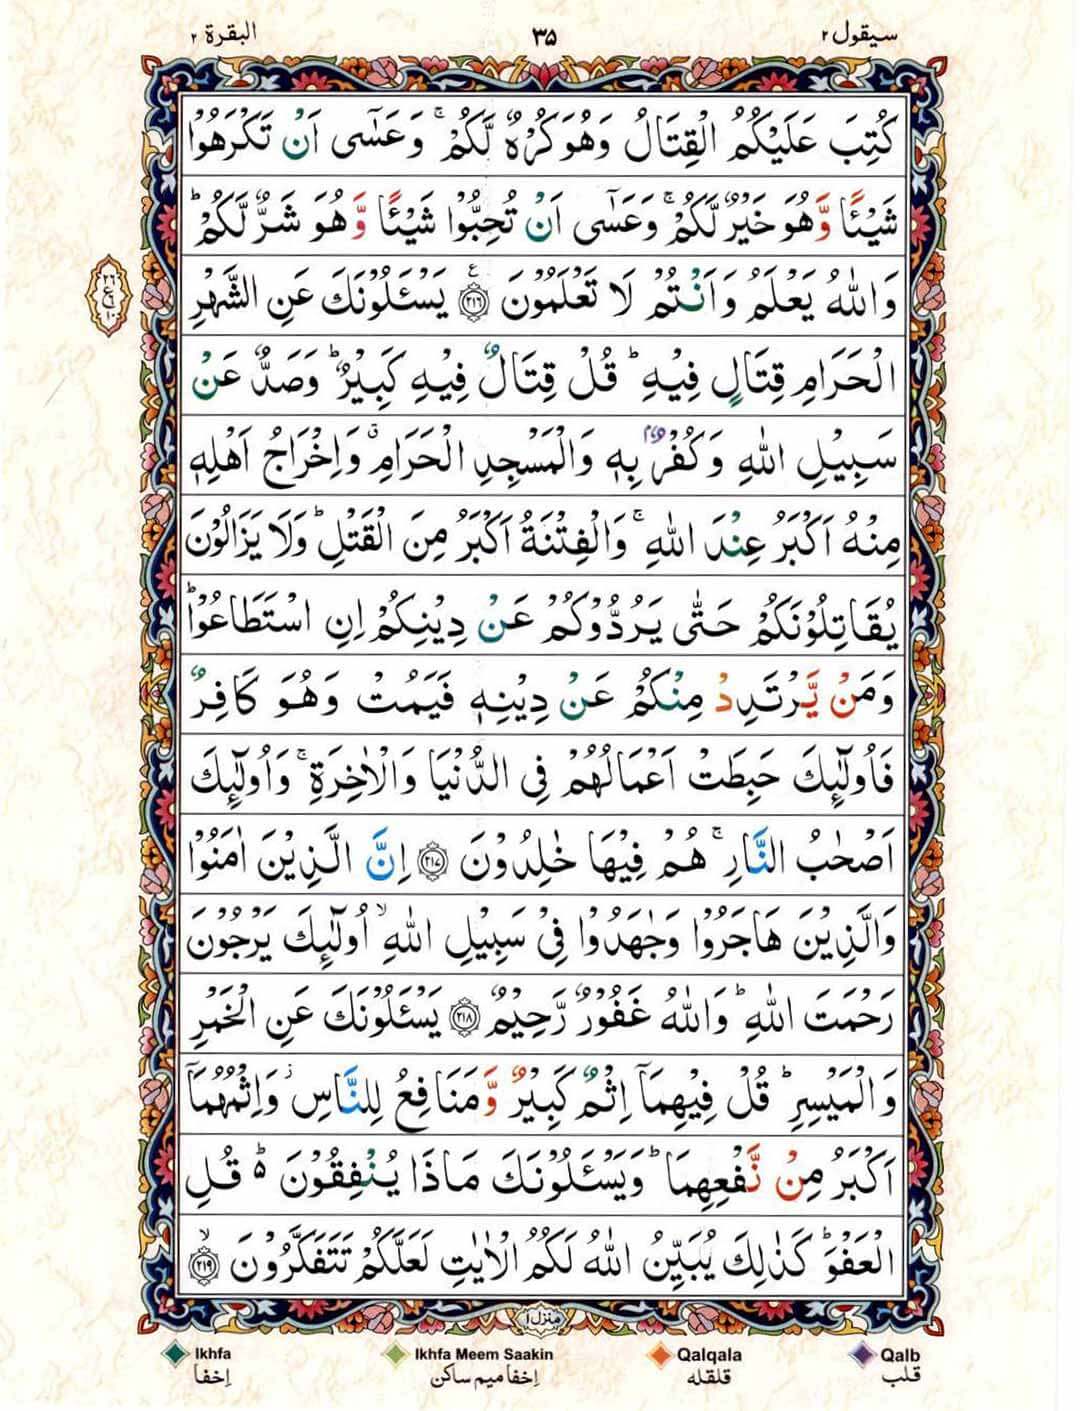 سیقول ۲
۳۵
البقرة ۲
كُتِبَ عَلَيْكُمُ الْقِتَالُ وَهُوَ كُرْهٌ لَّكُمْ ۚ وَعَسٰٓى اَنْ تَكْرَهُوْا
شَيْـًٔا وَّهُوَ خَيْرٌ لَّكُمْ ۚ وَعَسٰٓى اَنْ تُحِبُّوْا شَيْـًٔا وَّهُوَ شَرٌّ لَّكُمْ ؕ
وَاللّٰهُ يَعْلَمُ وَاَنْتُمْ لَا تَعْلَمُوْنَ ﴿۲۱۶﴾ يَسْـَٔلُوْنَكَ عَنِ الشَّهْرِ
۲۶
ع
۱۰
الْحَرَامِ قِتَالٍ فِيْهِ ؕ قُلْ قِتَالٌ فِيْهِ كَبِيْرٌ ؕ وَصَدٌّ عَنْ
سَبِيْلِ اللّٰهِ وَكُفْرٌۢ بِهٖ وَالْمَسْجِدِ الْحَرَامِ ۗ وَاِخْرَاجُ اَهْلِهٖ
مِنْهُ اَكْبَرُ عِنْدَ اللّٰهِ ۚ وَالْفِتْنَةُ اَكْبَرُ مِنَ الْقَتْلِ ؕ وَلَا يَزَالُوْنَ
يُقَاتِلُوْنَكُمْ حَتّٰى يَرُدُّوْكُمْ عَنْ دِيْنِكُمْ اِنِ اسْتَطَاعُوْا ؕ
وَمَنْ يَّرْتَدِدْ مِنْكُمْ عَنْ دِيْنِهٖ فَيَمُتْ وَهُوَ كَافِرٌ
فَاُولٰٓئِكَ حَبِطَتْ اَعْمَالُهُمْ فِى الدُّنْيَا وَالْاٰخِرَةِ ۚ وَاُولٰٓئِكَ
اَصْحٰبُ النَّارِ ۚ هُمْ فِيْهَا خٰلِدُوْنَ ﴿۲۱۷﴾ اِنَّ الَّذِيْنَ اٰمَنُوْا
وَالَّذِيْنَ هَاجَرُوْا وَجٰهَدُوْا فِىْ سَبِيْلِ اللّٰهِ ۙ اُولٰٓئِكَ يَرْجُوْنَ
رَحْمَتَ اللّٰهِ ؕ وَاللّٰهُ غَفُوْرٌ رَّحِيْمٌ ﴿۲۱۸﴾ يَسْـَٔلُوْنَكَ عَنِ الْخَمْرِ
وَالْمَيْسِرِ ؕ قُلْ فِيْهِمَآ اِثْمٌ كَبِيْرٌ وَّمَنَافِعُ لِلنَّاسِ ۫ وَاِثْمُهُمَآ
اَكْبَرُ مِنْ نَّفْعِهِمَا ؕ وَيَسْـَٔلُوْنَكَ مَاذَا يُنْفِقُوْنَ ۵ؕ قُلِ
الْعَفْوَ ؕ كَذٰلِكَ يُبَيِّنُ اللّٰهُ لَكُمُ الْاٰيٰتِ لَعَلَّكُمْ تَتَفَكَّرُوْنَ ۙ﴿۲۱۹﴾
منزل ۱
Ikhfa Ikhfa Meem Saakin Qalqala Qalb
اِخفا اِخفا میم ساکن قلقله قلب